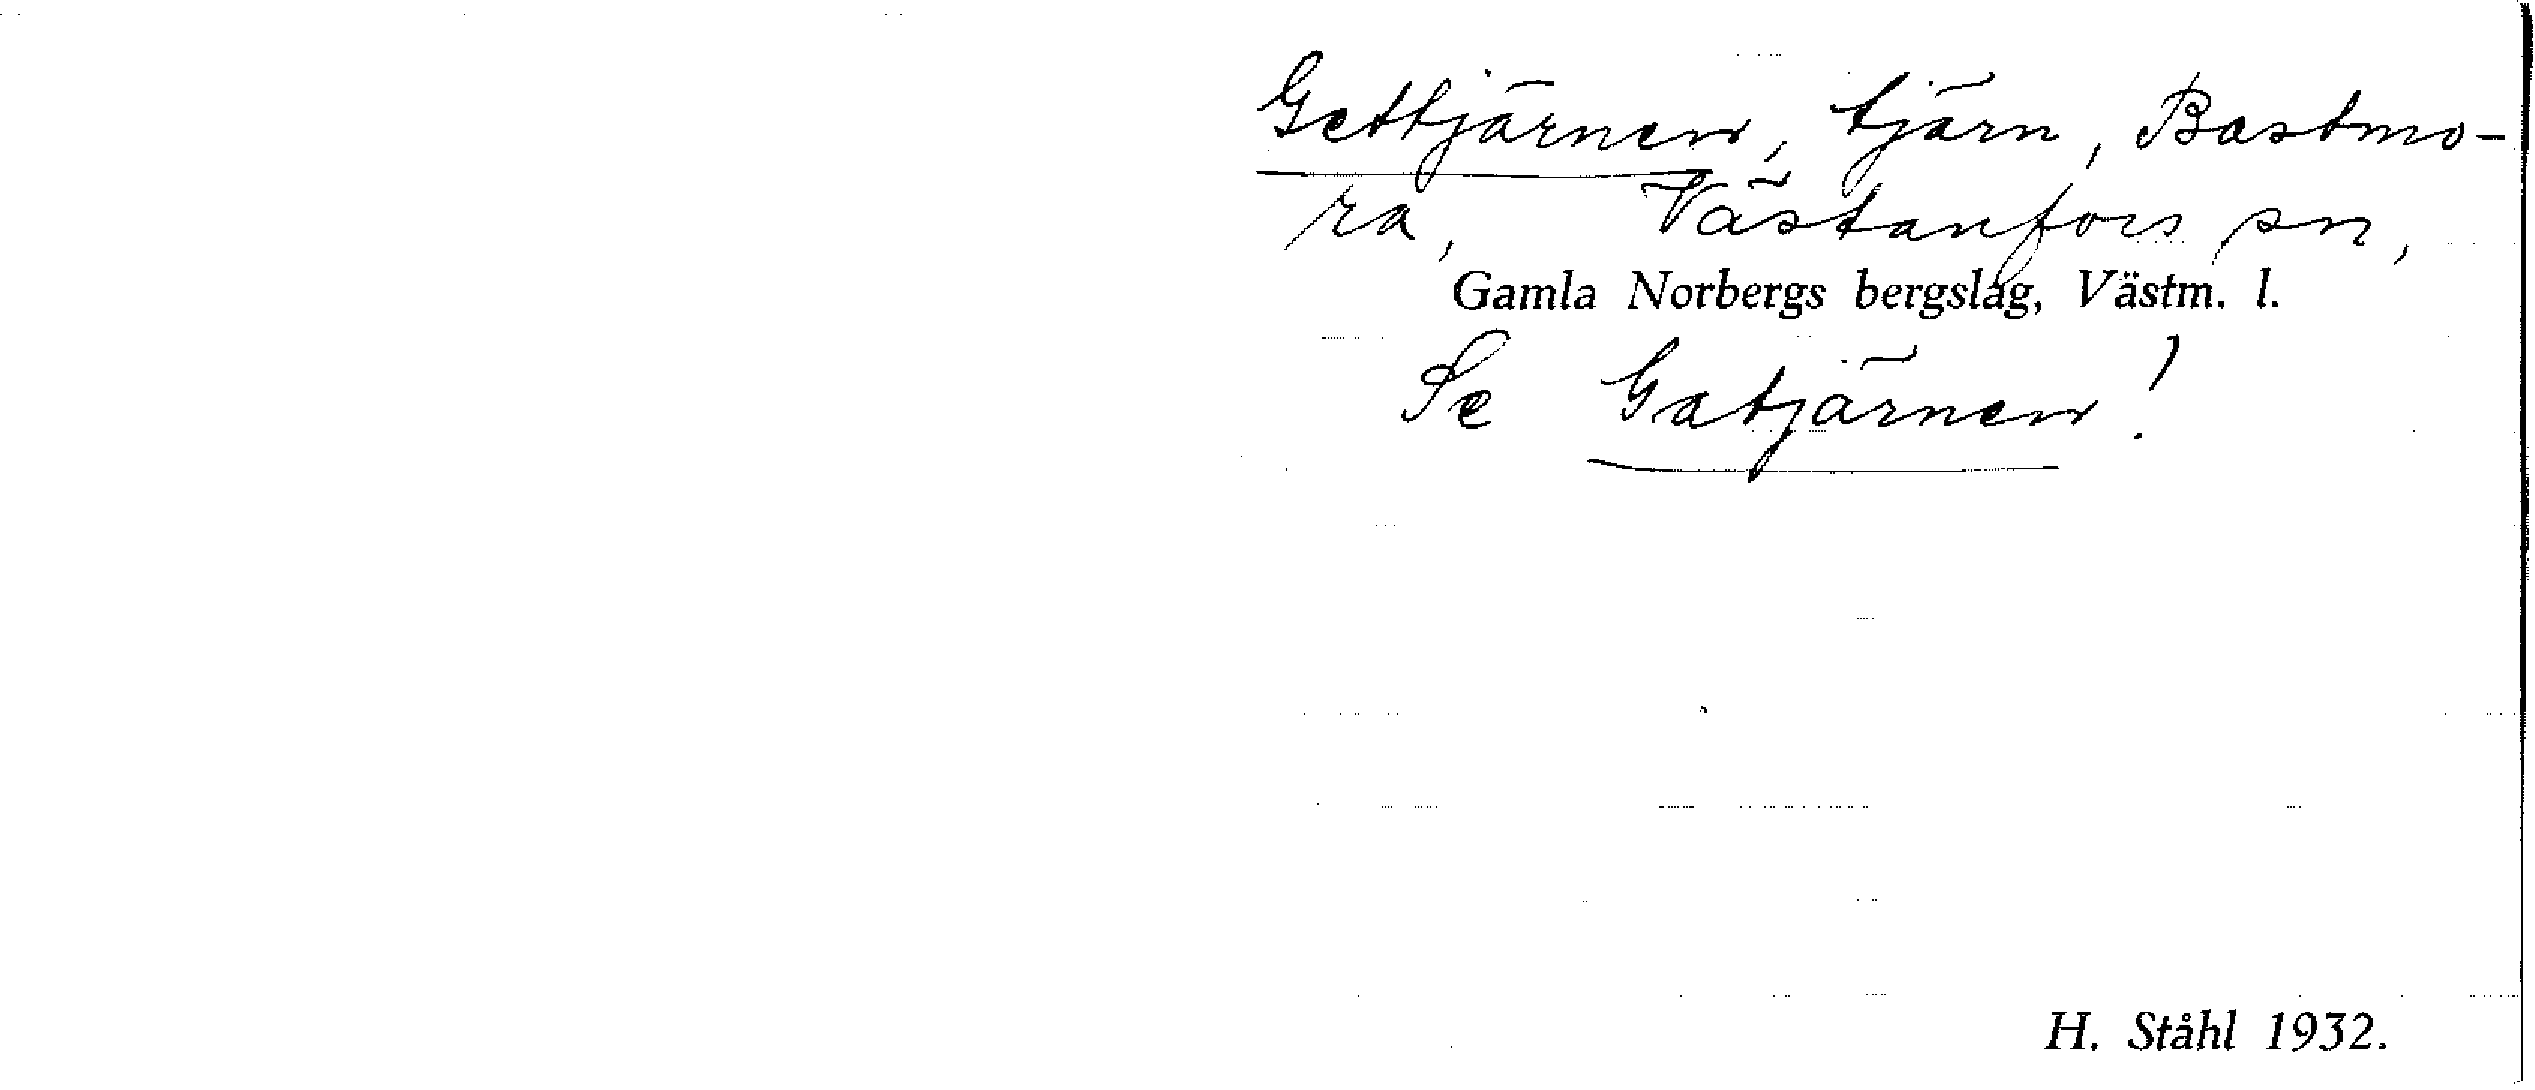 Gettjärnen, tjärn, Bastmo-
ra, Västanfors sn,
Gamla Norbergs bergslag, Västm. l.
Se Gatjärnen!
H. Ståhl 1932.